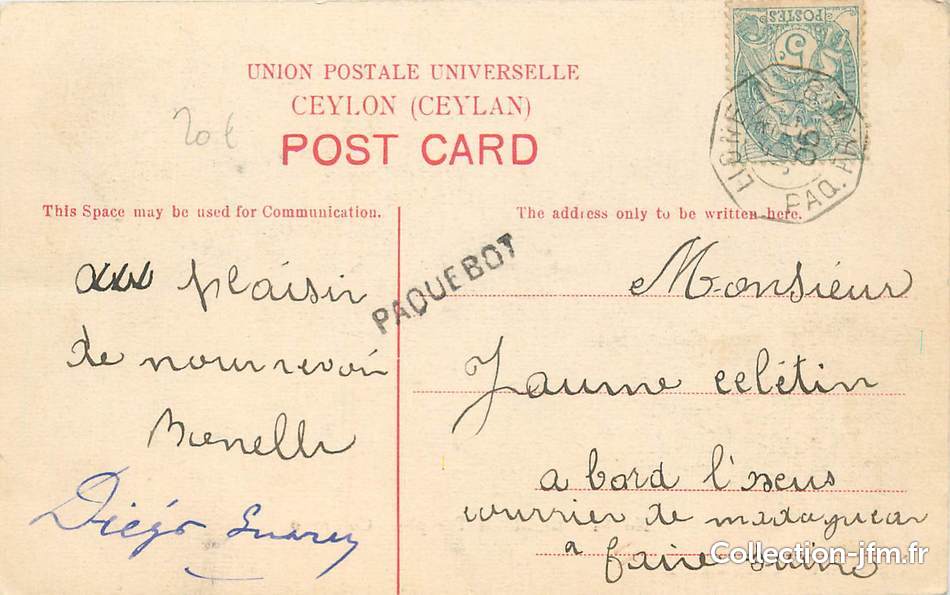 UNION POSTALE UNIVERSELLE
CEYLON (CEYLAN)
POST CARD
20 €
POSTES
5
LIGNE
PAQ. FR.
06
This Space may be used for Communication.
The address only to be written here.
PAQUEBOT
plaisir
de nous revoir
Diégo Suarez
Monsieur
Jaume celétin
a bord l'
courrier de madagascar
a faire suivre
Collection-jfm.fr